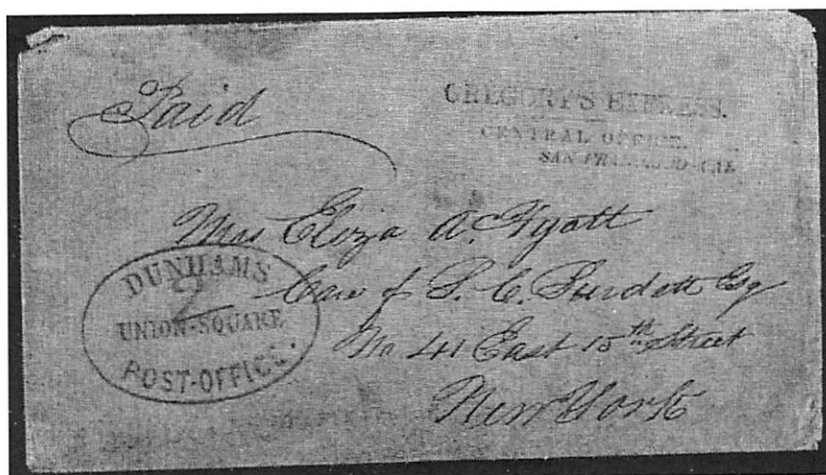 Paid
GREGORY'S EXPRESS.
CENTRAL OFFICE.
SAN FRANCISCO-CAL
Mrs Eliza A. Hyatt
Care of S. C. Burdett Esq
No 41 East 15th Street
New York
DUNHAMS
2
UNION-SQUARE
POST-OFFICE.